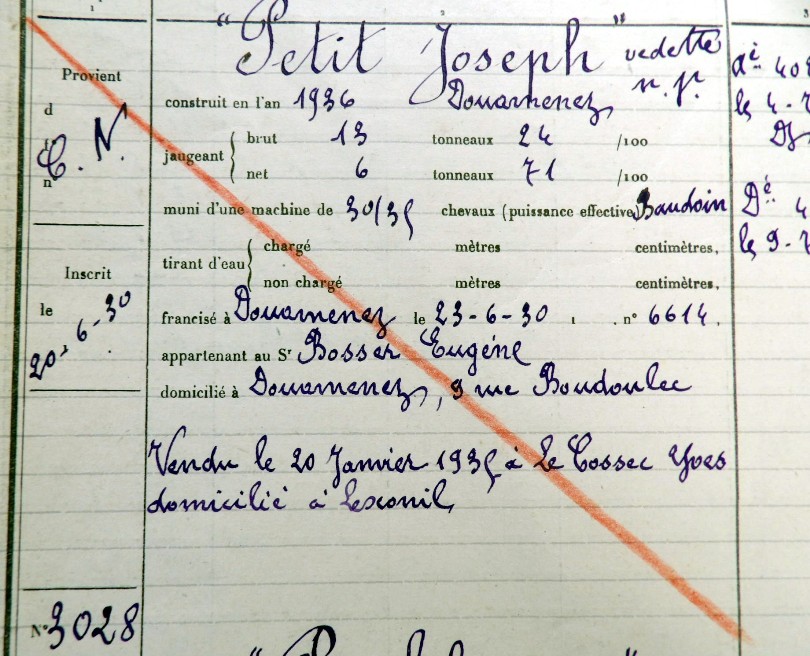 "Petit Joseph" vedette
n.p.
Provient
d
C. N.
n°
construit en l'an 1936 Douarnenez
jaugeant { brut 13 tonneaux 24 /100
net 6 tonneaux 71 /100
muni d'une machine de 30/35 chevaux (puissance effective Baudoin
tirant d'eau { chargé mètres centimètres,
non chargé mètres centimètres,
Inscrit
le
20-6-30
francisé à Douarnenez le 23-6-30 . n° 6614.
appartenant au Sr Bosser Eugène
domicilié à Douarnenez, 9 rue Boudoulec
Vendu le 20 Janvier 1935 à Le Cossec Yves
domicilié à Lesconil
N° 3028
Dé
le 4-7
Dé 4
le 9-7